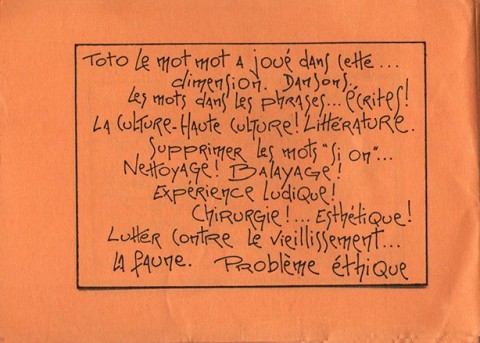 Toto le mot mot a joué dans cette...
dimension. Dansons..
les mots dans les phrases... écrites!
La culture-Haute culture! Littérature.
Supprimer les mots "si on"...
Nettoyage! Balayage!
Expérience ludique!
Chirurgie!... Esthétique!
Lutter contre le vieillissement...
la faune. Problème éthique